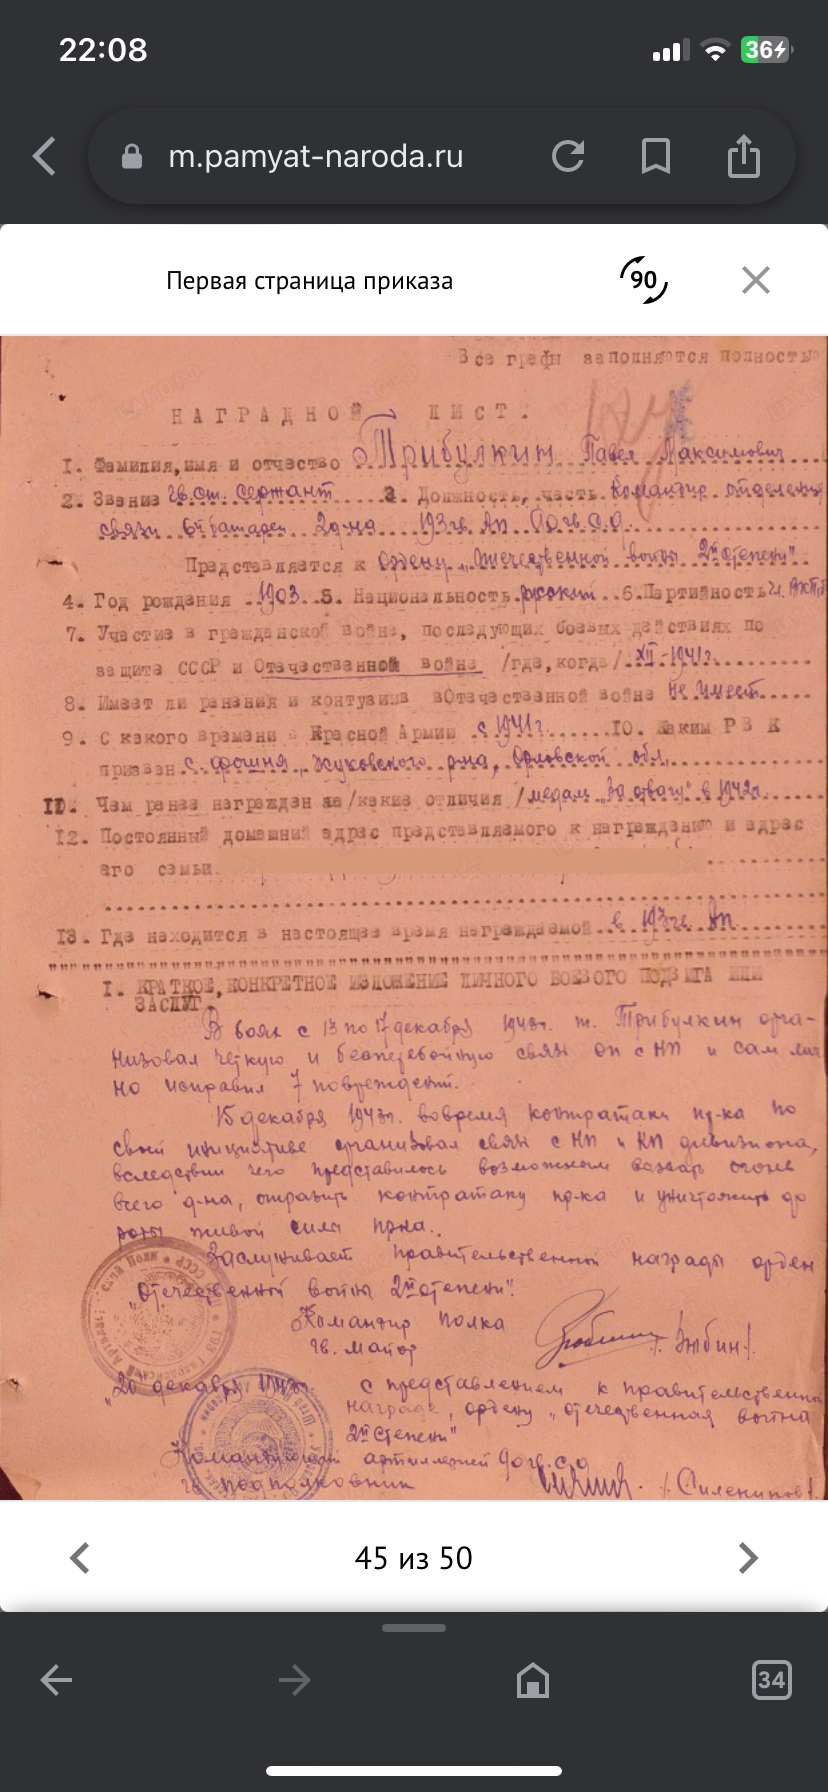 22:08
36
m.pamyat-naroda.ru
Первая страница приказа
90
Все графы заполняются полностью
НАГРАДНОЙ ЛИСТ.
1. Фамилия, имя и отчество Трибулкин Павел Максимович
2. Звание гв. ст. сержант 3. Должность, часть Командир отделения
связи 6й батареи 2 д-на 193 гв. Ап гв. с.д.
Представляется к Ордену „Отечественной войны 2й степени"
4. Год рождения 1903 5. Национальность русский 6. Партийность чл. ВКП/б
7. Участие в гражданской войне, последующих боевых действиях по
защите СССР и Отечественной войне /где, когда/ XII-1941г.
8. Имеет ли ранения и контузии в Отечественной войне не имеет
9. С какого времени в Красной Армии с 1941г. 10. Каким РВК
призван Жуковского р-на, Орловской обл.
11. Чем ранее награжден за/какие отличия/ медаль „За отвагу" в 1942г.
12. Постоянный домашний адрес представляемого к награждению и адрес
его семьи
13. Где находится в настоящее время награждаемой в 193 гв. Ап.
1. КРАТКОЕ, КОНКРЕТНОЕ ИЗЛОЖЕНИЕ ЛИЧНОГО БОЕВОГО ПОДВИГА ИЛИ
ЗАСЛУГ.
В боях с 13 по 17 декабря 1943г. т. Трибулкин орга-
низовал чёткую и бесперебойную связь ОП с НП и сам лич
но исправил 7 повреждений.
15 декабря 1943г. вовремя контратаки пр-ка по
своей инициативе организовал связь с НП и КП дивизиона,
вследствии чего представилось возможным вызвать огонь
всего д-на, отразить контратаку пр-ка и уничтожить до
роты живой силы пр-ка.
Заслуживает правительственной награды орден
„Отечественной войны 2й степени".
Командир полка
гв. майор /Зыбин/.
„20 декабря 1943г.
с представлением к правительственной
награде, ордену „Отечественная война
2й степени"
Командующий артиллерией 90 гв. с.д.
гв. подполковник /Силенинов/.
45 из 50
34